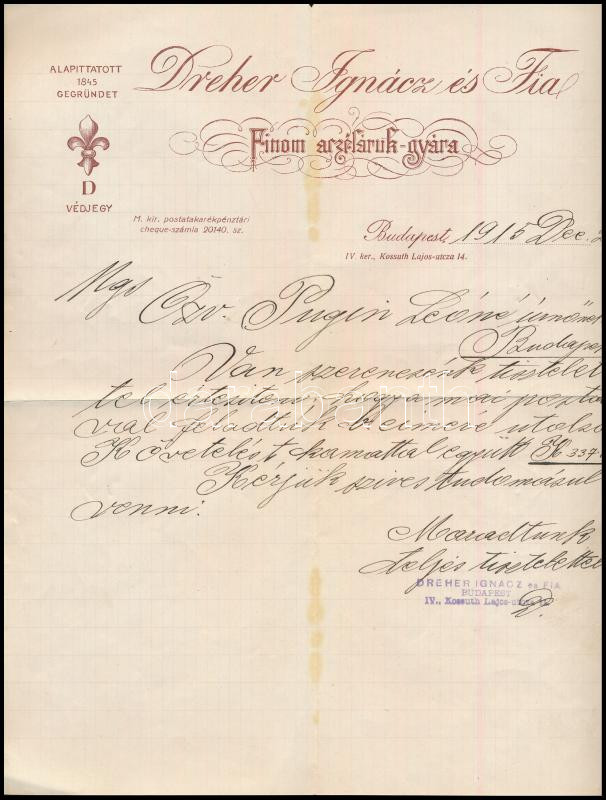 ALAPITTATOTT
1845
GEGRÜNDET
Dreher Ignácz és Fia
Finom aczéláruk-gyára
D
VÉDJEGY
M. kir. postatakarékpénztári
cheque-számla 20140. sz.
Budapest, 1915 Dec.
IV. ker., Kossuth Lajos-utcza 14.
Mgs
Özv. Pugin Leóné úrnőnek
Budapest
Van szerencsénk tisztelet
tel értesíteni, hogy a mai postá
val feladtuk b. címére utolsó
Követelést kamattal együtt K 334.
Kérjük szives tudomásul
venni.
Maradtunk
teljes tisztelettel
DREHER IGNÁCZ és FIA
BUDAPEST
IV., Kossuth Lajos-utcza 14.
darabanth